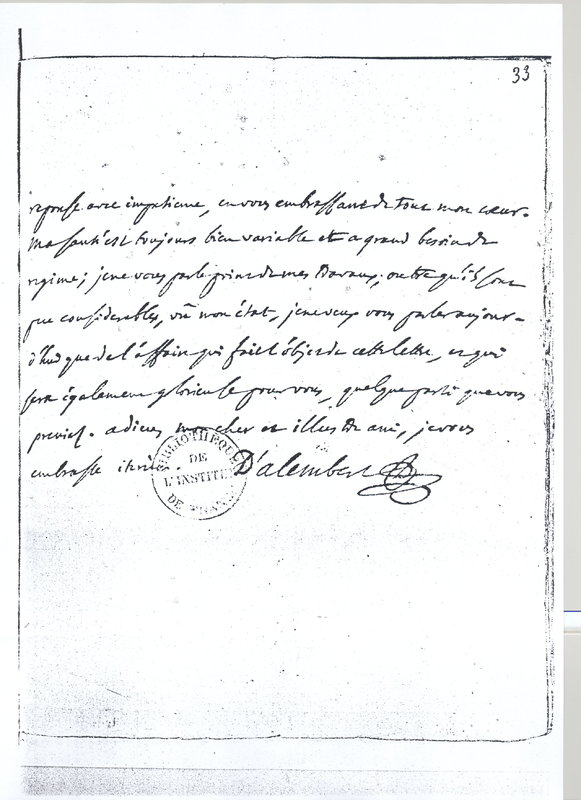 33
reponse avec impatience, en vous embrassant de tout mon cœur.
Ma santé est toujours bien variable et a grand besoin de
regime; je ne vous parle point de mes travaux, outre qu'ils sont
peu considerables, vû mon état, je ne veux vous parler aujour-
d'hui que de l'affaire qui fait l'objet de cette lettre, et qui
sera également glorieuse pour vous, quelque parti que vous
preniez. adieu mon cher et illustre ami, je vous
embrasse iterum. D'alembert
BIBLIOTHEQUE
DE
L'INSTITUT
DE FRANCE